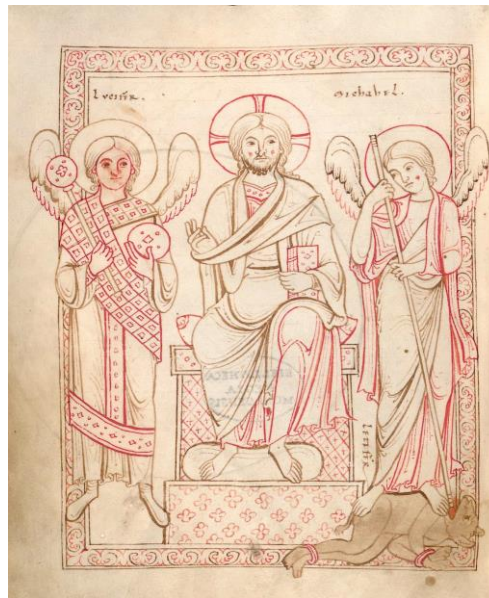 Lvcifer.
Michahel.
Lucifer